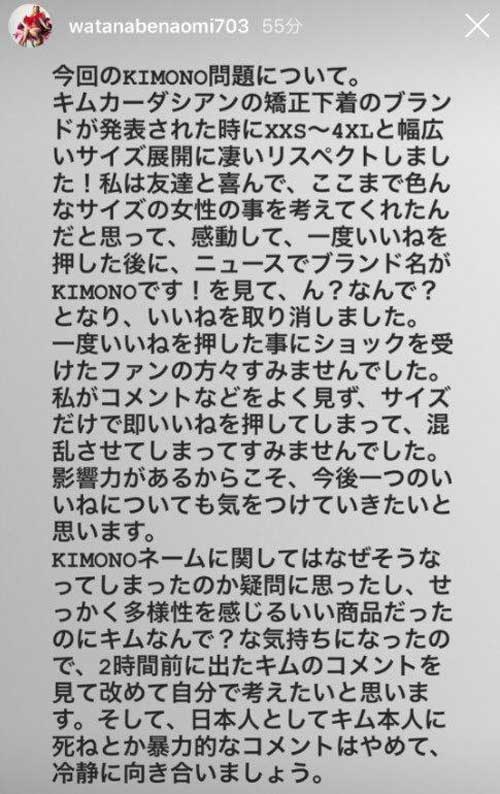 watanabenaomi703 55分
今回のKIMONO問題について。
キムカーダシアンの矯正下着のブラン
ドが発表された時にXXS〜4XLと幅広
いサイズ展開に凄いリスペクトしまし
た！私は友達と喜んで、ここまで色ん
なサイズの女性の事を考えてくれたん
だと思って、感動して、一度いいねを
押した後に、ニュースでブランド名が
KIMONOです！を見て、ん？なんで？
となり、いいねを取り消しました。
一度いいねを押した事にショックを受
けたファンの方々すみませんでした。
私がコメントなどをよく見ず、サイズ
だけで即いいねを押してしまって、混
乱させてしまってすみませんでした。
影響力があるからこそ、今後一つのい
いねについても気をつけていきたいと
思います。
KIMONOネームに関してはなぜそうな
ってしまったのか疑問に思ったし、せ
っかく多様性を感じるいい商品だった
のにキムなんで？な気持ちになったの
で、2時間前に出たキムのコメントを
見て改めて自分で考えたいと思いま
す。そして、日本人としてキム本人に
死ねとか暴力的なコメントはやめて、
冷静に向き合いましょう。